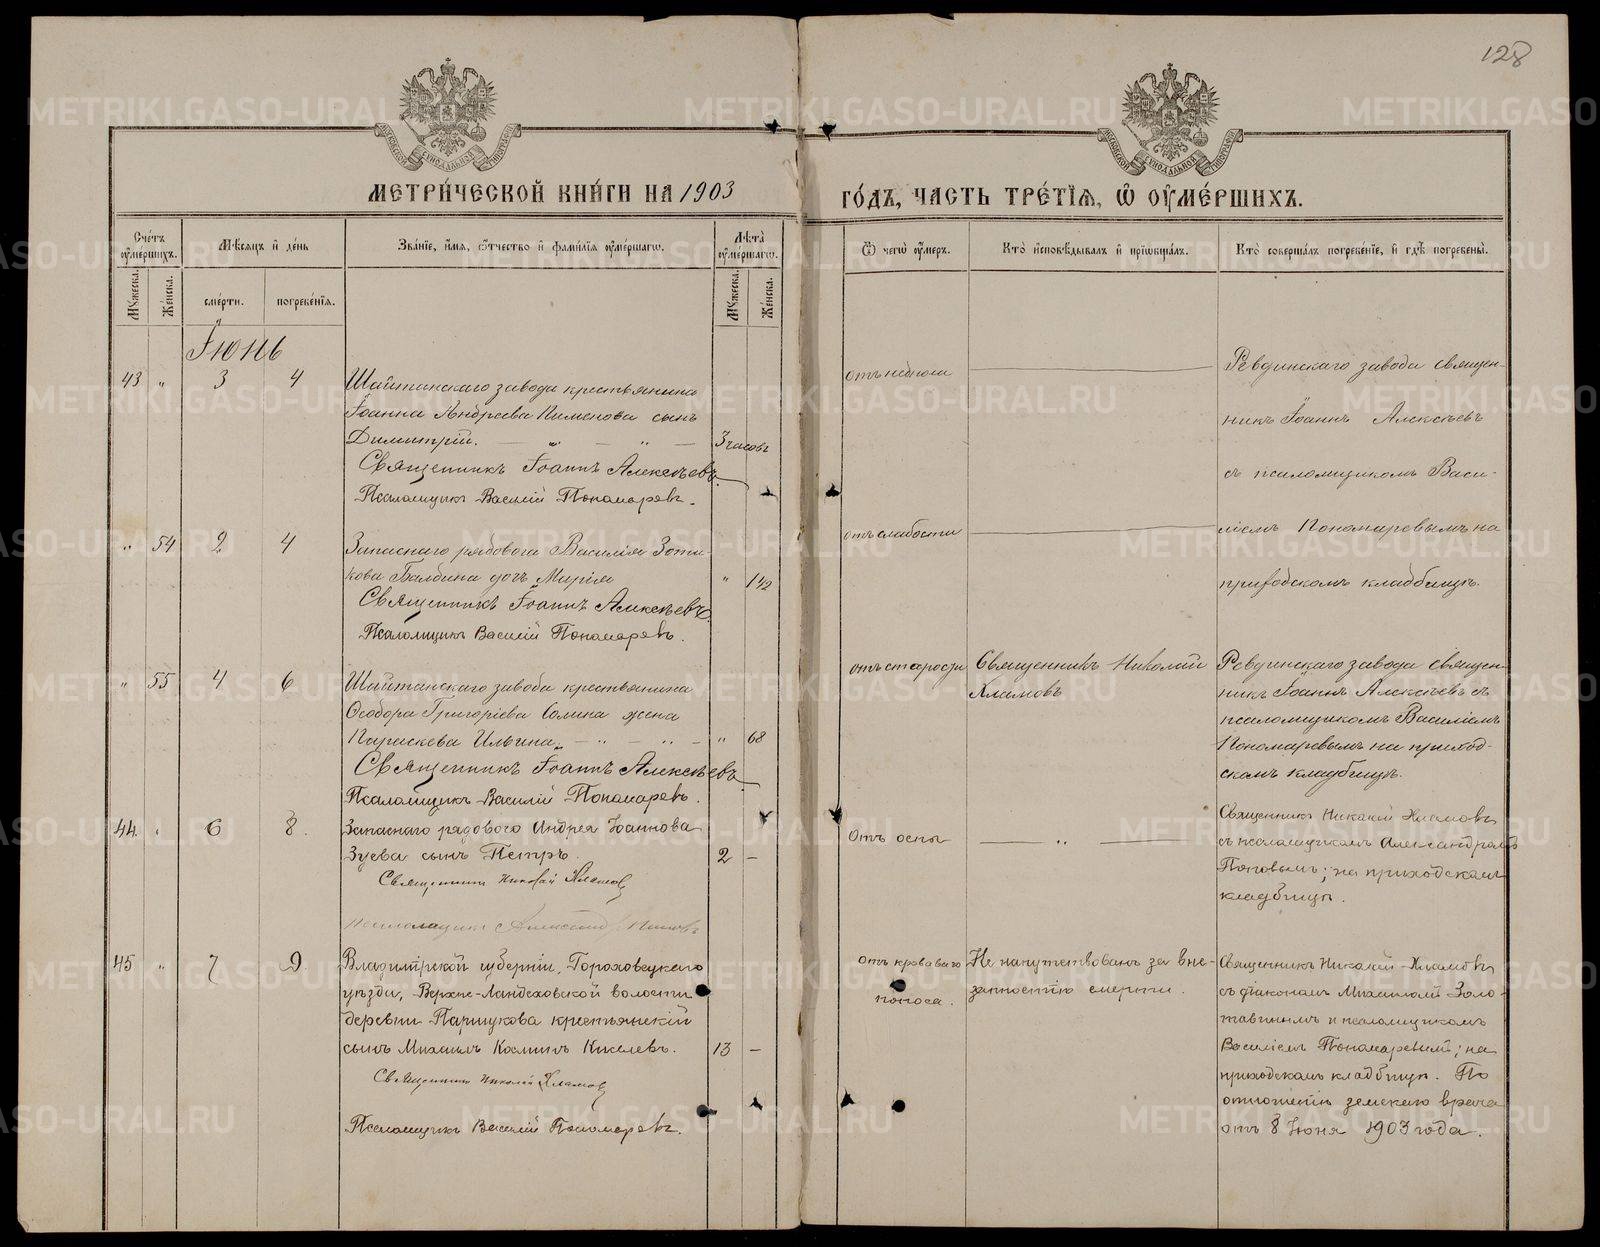 128
МЕТРИ́ЧЕСКОЙ КНИ́ГИ НА 1903
ГО́ДЪ, ЧАСТЬ ТРЕ́ТІѦ, Ѿ ОУМЕ́РШИХЪ.
Сче́тъ оуме́ршихъ.
Му́жеска.
Же́нска.
Мѣсяцъ и де́нь
сме́рти.
погребе́нія.
Зва́ніе, и́мя, о́тчество и фами́лія оуме́ршагѡ.
Лѣта̀ оуме́ршагѡ.
Му́жеска.
Же́нска.
Ѿ чегѡ̀ оу́меръ.
Кто̀ исповѣ́дывалъ и пріѡбща́лъ.
Кто̀ соверша́лъ погребе́ніе, и гдѣ̀ погребены̀.
Іюнь
43 " 3 4
Шайтанскаго завода крестьянина
Іоанна Андреева Пименова сынъ
Димитрій. — " — " — 3 часовъ
Священникъ Іоаннъ Алексѣевъ.
Псаломщикъ Василій Пономаревъ.
Ревдинскаго завода священ-
никъ Іоаннъ Алексѣевъ
съ псаломщикомъ Васи-
ліемъ Пономаревымъ на
приходскомъ кладбищѣ.
" 54 2 4
Запаснаго рядового Василія Зоти-
кова дочь Марія "
Священникъ Іоаннъ Алексѣевъ.
Псаломщикъ Василій Пономаревъ.
отъ слабости
" 55 4 6
Шайтанскаго завода крестьянина
Ѳеодора Григоріева жена
Параскева Ильина. — " — " — " 68
Священникъ Іоаннъ Алексѣевъ
Псаломщикъ Василій Пономаревъ.
отъ старости
Священникъ Николай
Хламовъ
Ревдинскаго завода священ-
никъ Іоаннъ Алексѣевъ съ
псаломщикомъ Василіемъ
Пономаревымъ на приход-
скомъ кладбищѣ.
44. " 6 8.
Запаснаго рядового Андрея Іоаннова
Зуева сынъ Петръ. 2 —
Священникъ Николай Хламовъ
Псаломщикъ Александръ Поповъ
Отъ оспы
— " —
Священникъ Николай Хламовъ
съ псаломщикомъ Александромъ
Поповымъ; на приходскомъ
кладбищѣ.
45 " 7 9.
Владимірской губерніи, Гороховецкаго
уѣзда, Верхне-Ландеховской волости
деревни Паршукова крестьянскій
сынъ Михаилъ Косминъ Киселевъ. 13 —
Священникъ Николай Хламовъ
Псаломщикъ Василій Пономаревъ.
Отъ кроваваго
поноса.
Не напутствованъ за вне-
запностію смерти.
Священникъ Николай Хламовъ
съ діакономъ Михаиломъ Золо-
тавинымъ и псаломщикомъ
Василіемъ Пономаревымъ; на
приходскомъ кладбищѣ. По
отношенію земскаго врача
отъ 8 Іюня 1903 года.
METRIKI.GASO-URAL.RU